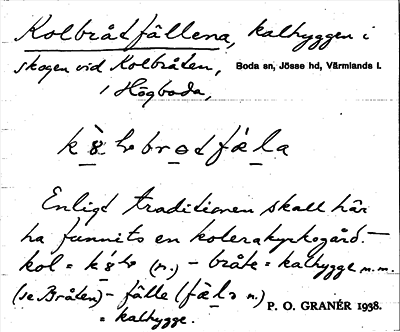 Kolbråtfällena, kalhyggen i
skogen vid Kolbråten, Boda sn, Jösse hd, Värmlands l.
i Högboda,
Enligt traditionen skall här
ha funnits en kolerakyrkogård. –
kol = (n.) – bråte = kalhygge m.m.
(se Bråten) – fälle (n.)
= kalhygge. P. O. GRANÉR 1938.